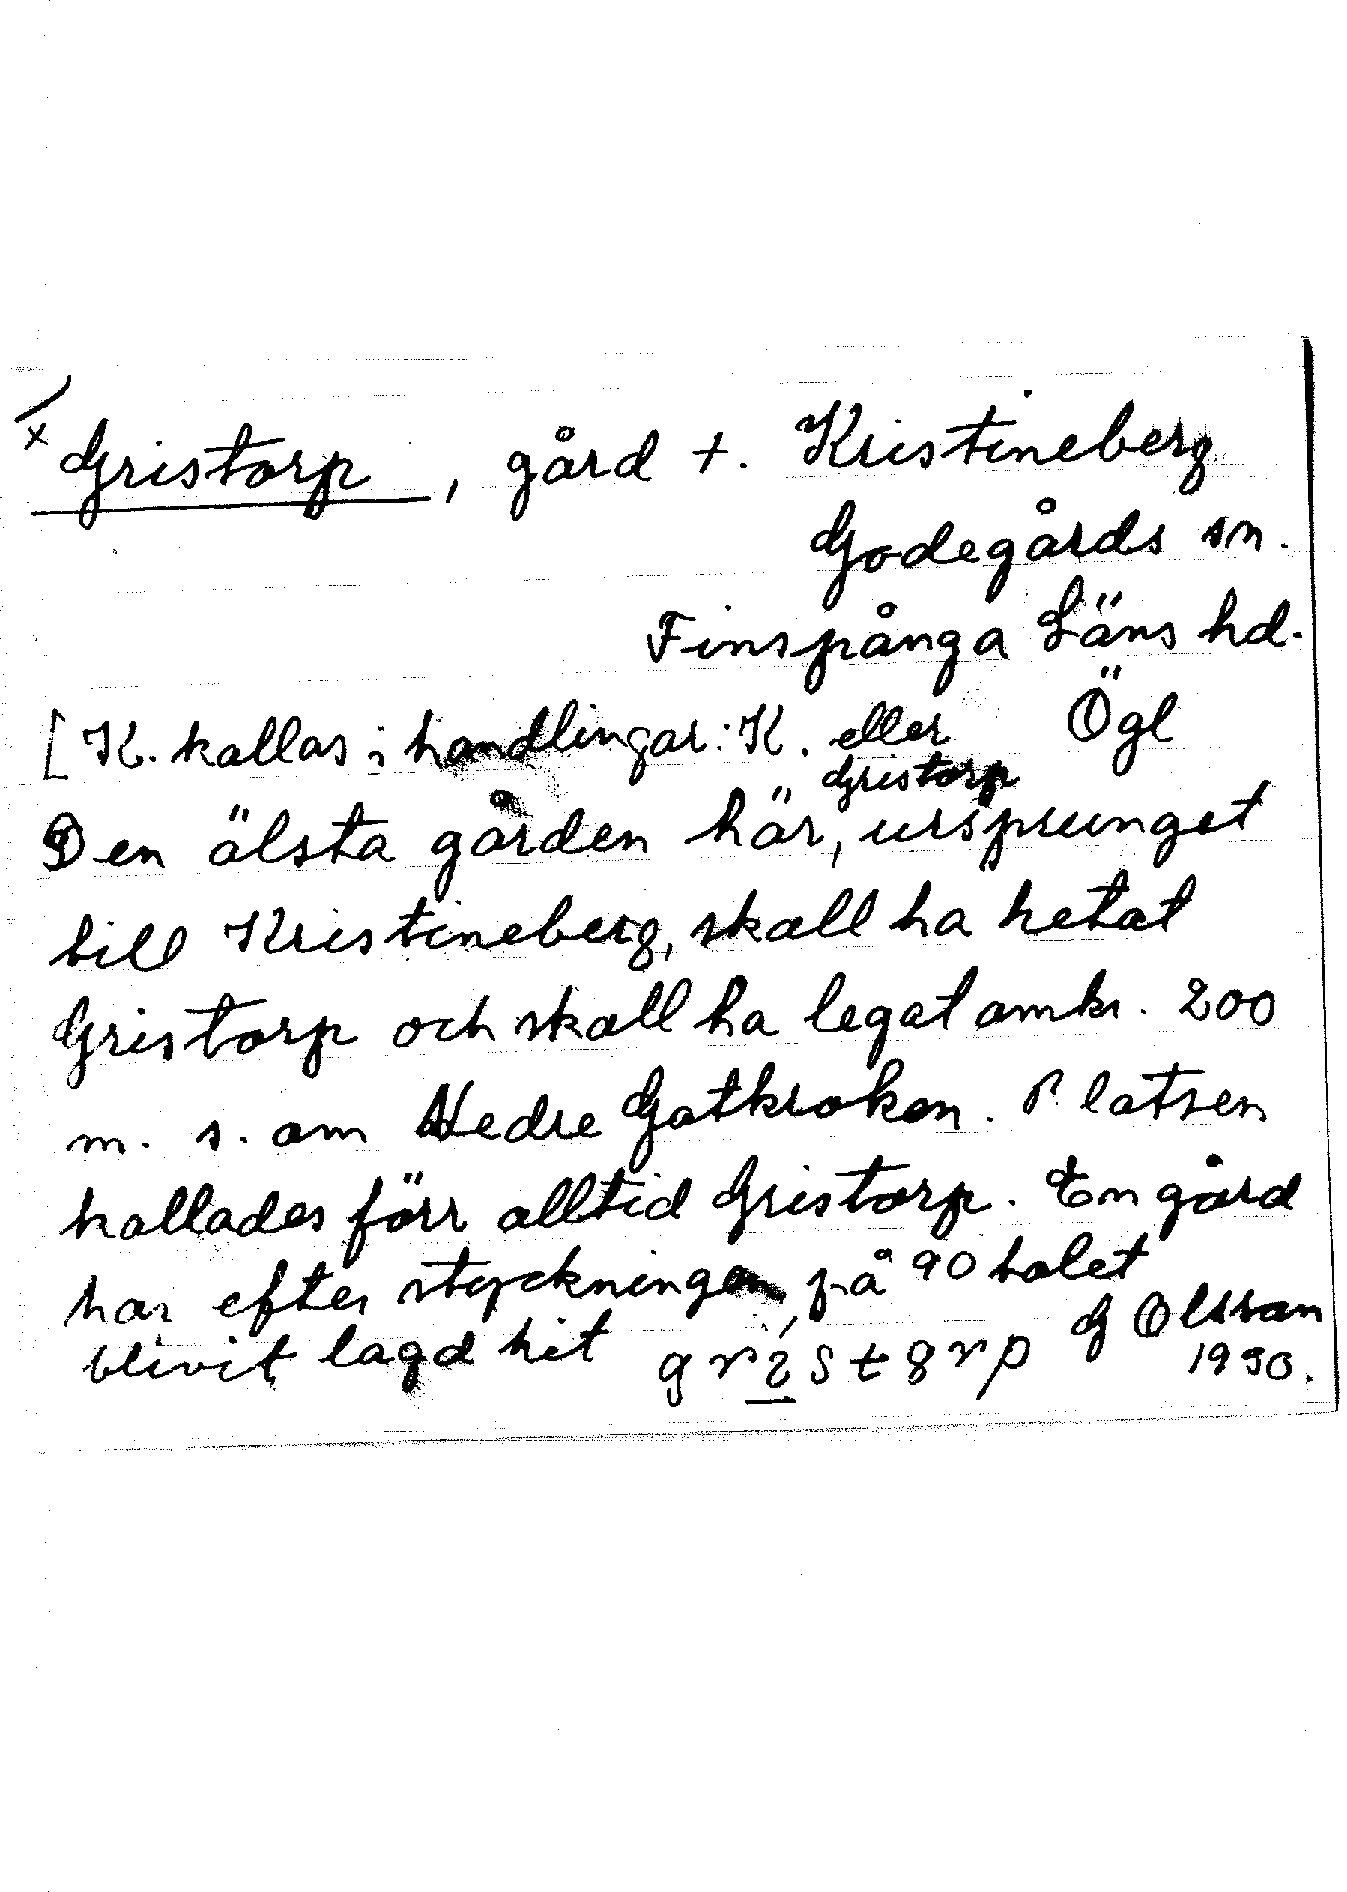 x Gristorp, gård t. Kristineberg
Godegårds sn.
Finspånga Läns hd.
Ögl
[K. kallas i handlingar: K. eller
Gristorp
Den älsta gården här, ursprunget
till Kristineberg, skall ha hetat
Gristorp och skall ha legat omkr. 200
m. s. om Nedre Gatkroken. Platsen
kallades förr alltid Gristorp. En gård
har efter styckningen på 90 talet
blivit lagd hit
G Olsson
1930.